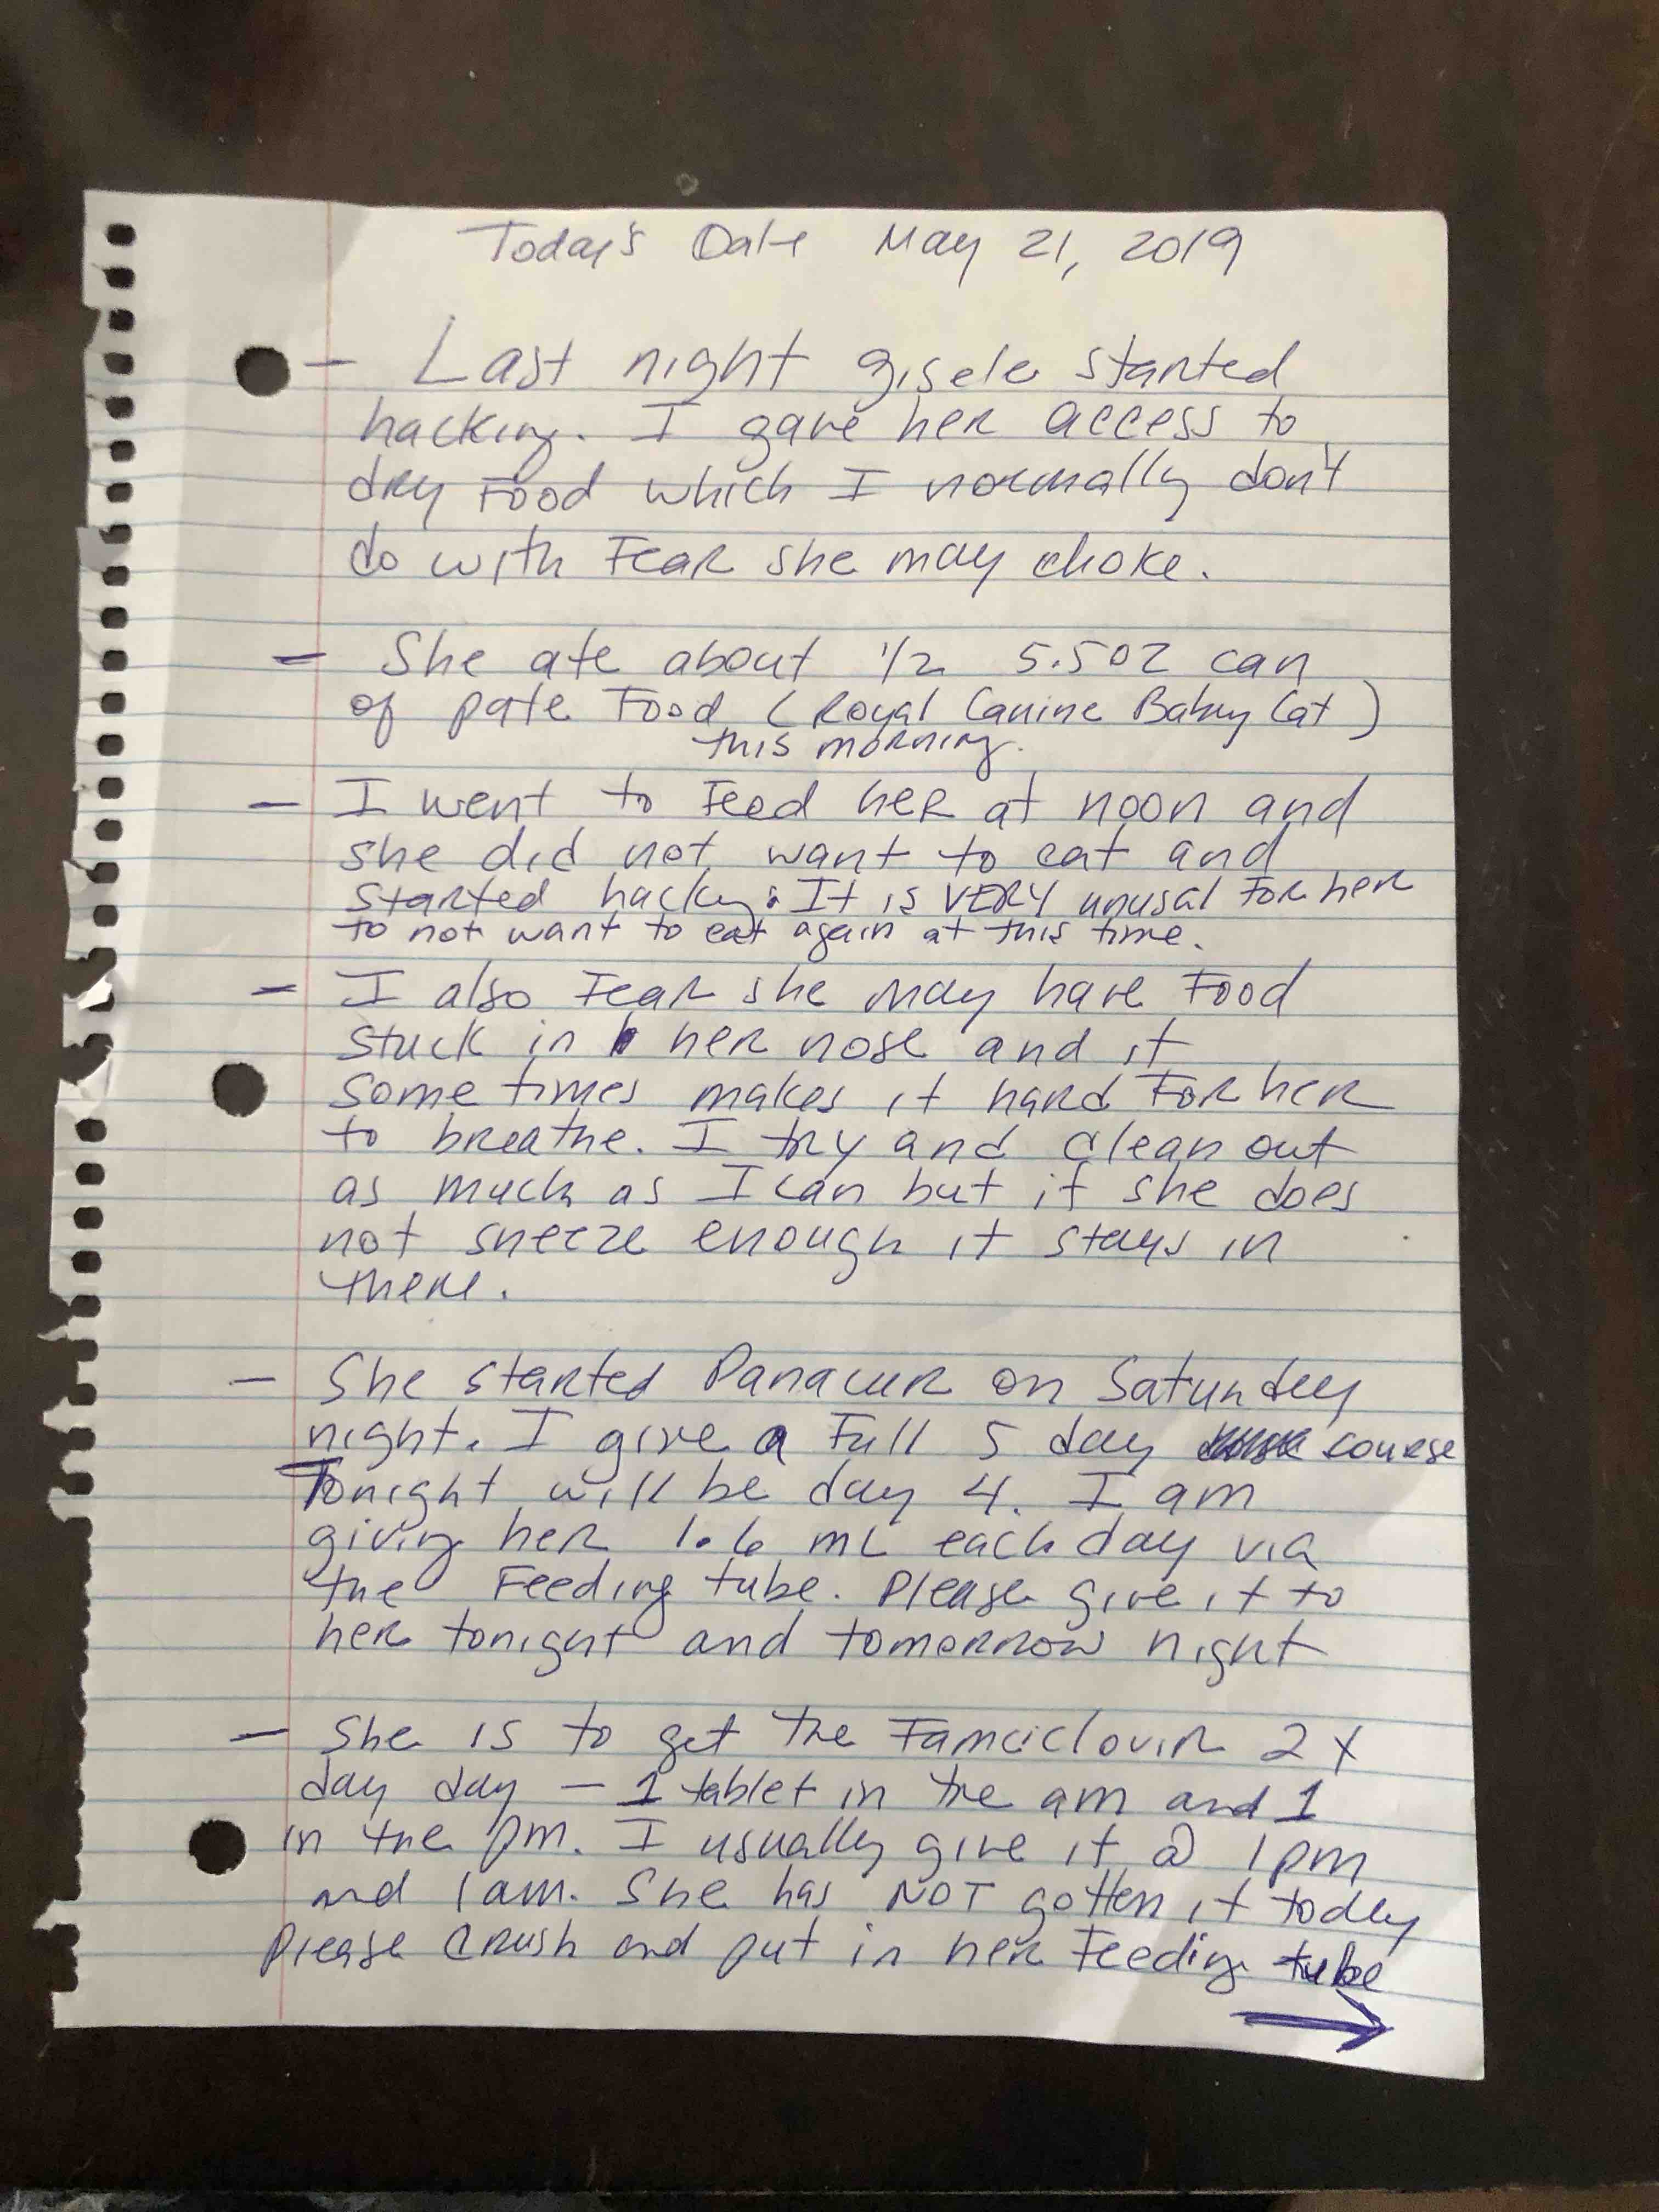 Today's Date May 21, 2019
- Last night gisele started
hacking. I gave her access to
dry food which I normally don't
do with fear she may choke.
- She ate about 1/2 5.5oz can
of pate food (Royal Canine Baby Cat)
this morning.
- I went to feed her at noon and
she did not want to eat and
started hacking. It is VERY unusal for her
to not want to eat again at this time.
- I also fear she may have food
stuck in her nose and it
some times makes it hard for her
to breathe. I try and clean out
as much as I can but if she does
not sneeze enough it stays in
there.
- She started Panacur on Saturday
night. I give a full 5 day course
Tonight will be day 4. I am
giving her 1.6 mL each day via
the feeding tube. Please give it to
her tonight and tomorrow night
- She is to get the Famciclovir 2x
day day - 1 tablet in the am and 1
in the pm. I usually give it @ 1pm
and 1am. She has NOT gotten it today
Please crush and put in her feeding tube
→